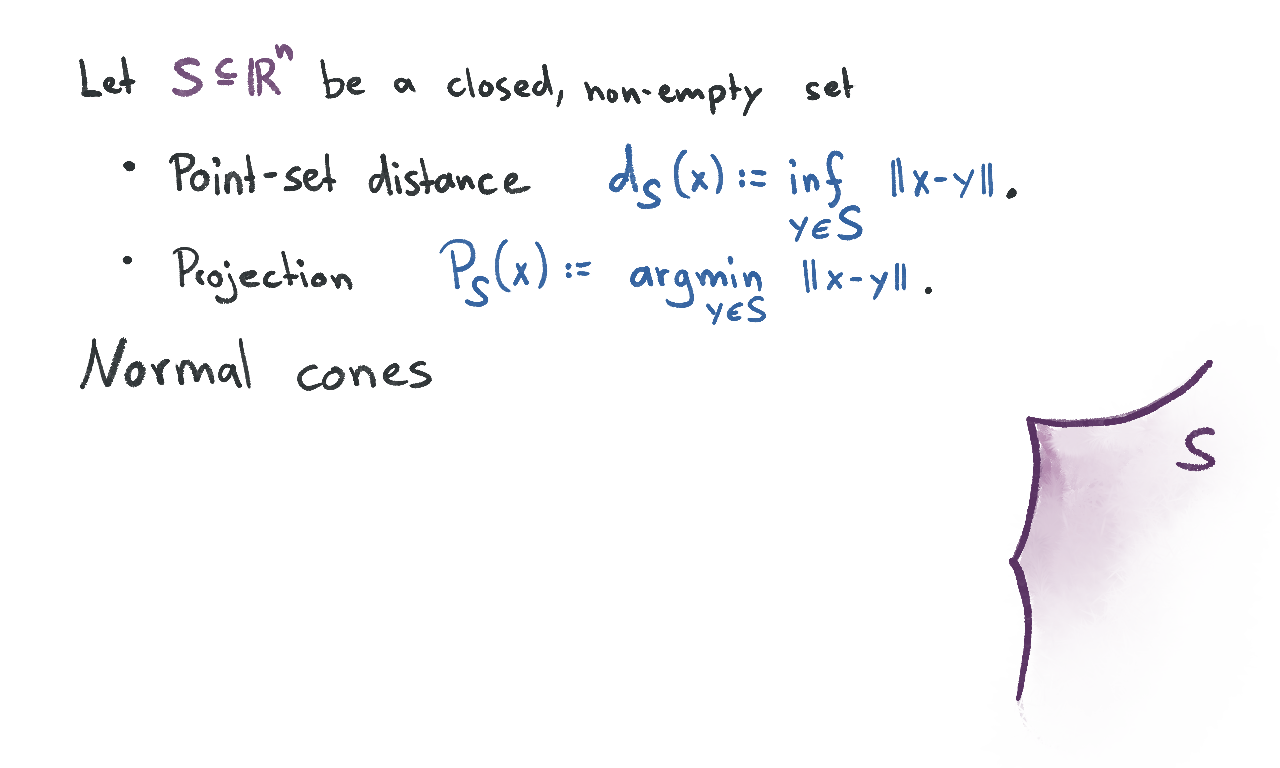 Let S ⊆ ℝⁿ be a closed, non-empty set
• Point-set distance d_S(x) := inf_{y∈S} ‖x-y‖.
• Projection P_S(x) := argmin_{y∈S} ‖x-y‖.
Normal cones
S